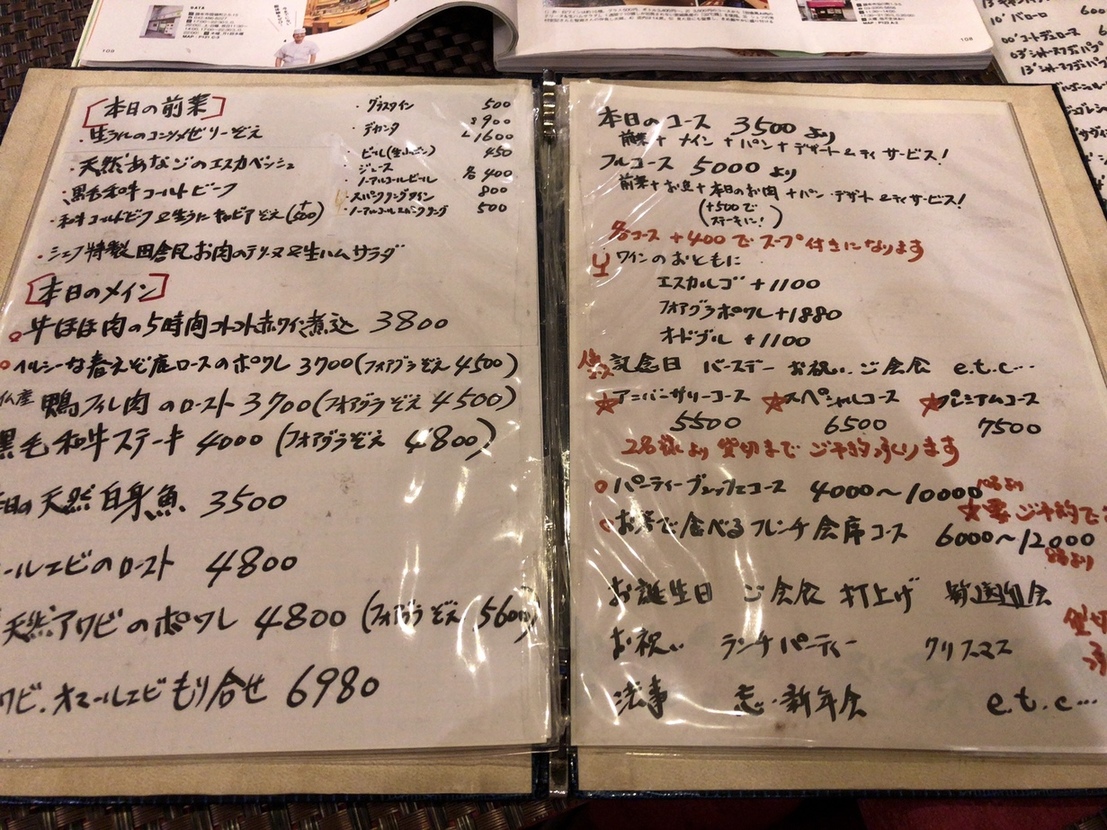 KATA
109
108
MAP
10' バローロ 600
00' コートデュローヌ
【本日の前菜】
・生うにのコンソメゼリーぞえ
・天然あなごのエスカベッシュ
・黒毛和牛コールドビーフ
・和牛コールドビーフ&生うにキャビアぞえ(+500)
・シェフ特製田舎風お肉のテリーヌ&生ハムサラダ
・グラスワイン 500
・デカンタ S 900
L 1600
・ビール(生小ビン) 450
・ジュース
・ノーアルコールビール 各400
・スパークリングワイン 800
・ノーアルコールスパークリング 500
【本日のメイン】
牛ほほ肉の5時間コトコト赤ワイン煮込 3800
ヘルシーな春えぞ鹿ロースのポワレ 3700(フォアグラぞえ 4500)
仏産 鴨フィレ肉のロースト 3700(フォアグラぞえ 4500)
黒毛和牛ステーキ 4000(フォアグラぞえ 4800)
日の天然白身魚 3500
ールエビのロースト 4800
天然アワビのポワレ 4800(フォアグラぞえ 5600)
ワビ.オマールエビもり合せ 6980
本日のコース 3500より
前菜+メイン+パン+デザート&ティサービス!
フルコース 5000より
前菜+お魚+本日のお肉+パン・デザート&ティサービス!
(+500でステーキに!)
各コース+400でスープ付きになります
ワインのおともに
エスカルゴ+1100
フォアグラポワレ+1880
オードブル+1100
記念日 バースデー お祝い、ご会食 e.t.c…
★アニバーサリーコース ★スペシャルコース ★プレミアムコース
5500 6500 7500
2名様より貸切までご予約承ります
○パーティーブッフェコース 4000〜10000
★要ご予約で
○お箸で食べるフレンチ会席コース 6000〜12000
お誕生日 ご会食 打上げ 歓送迎会
お祝い ランチパーティー クリスマス
法事 忘・新年会 e.t.c…